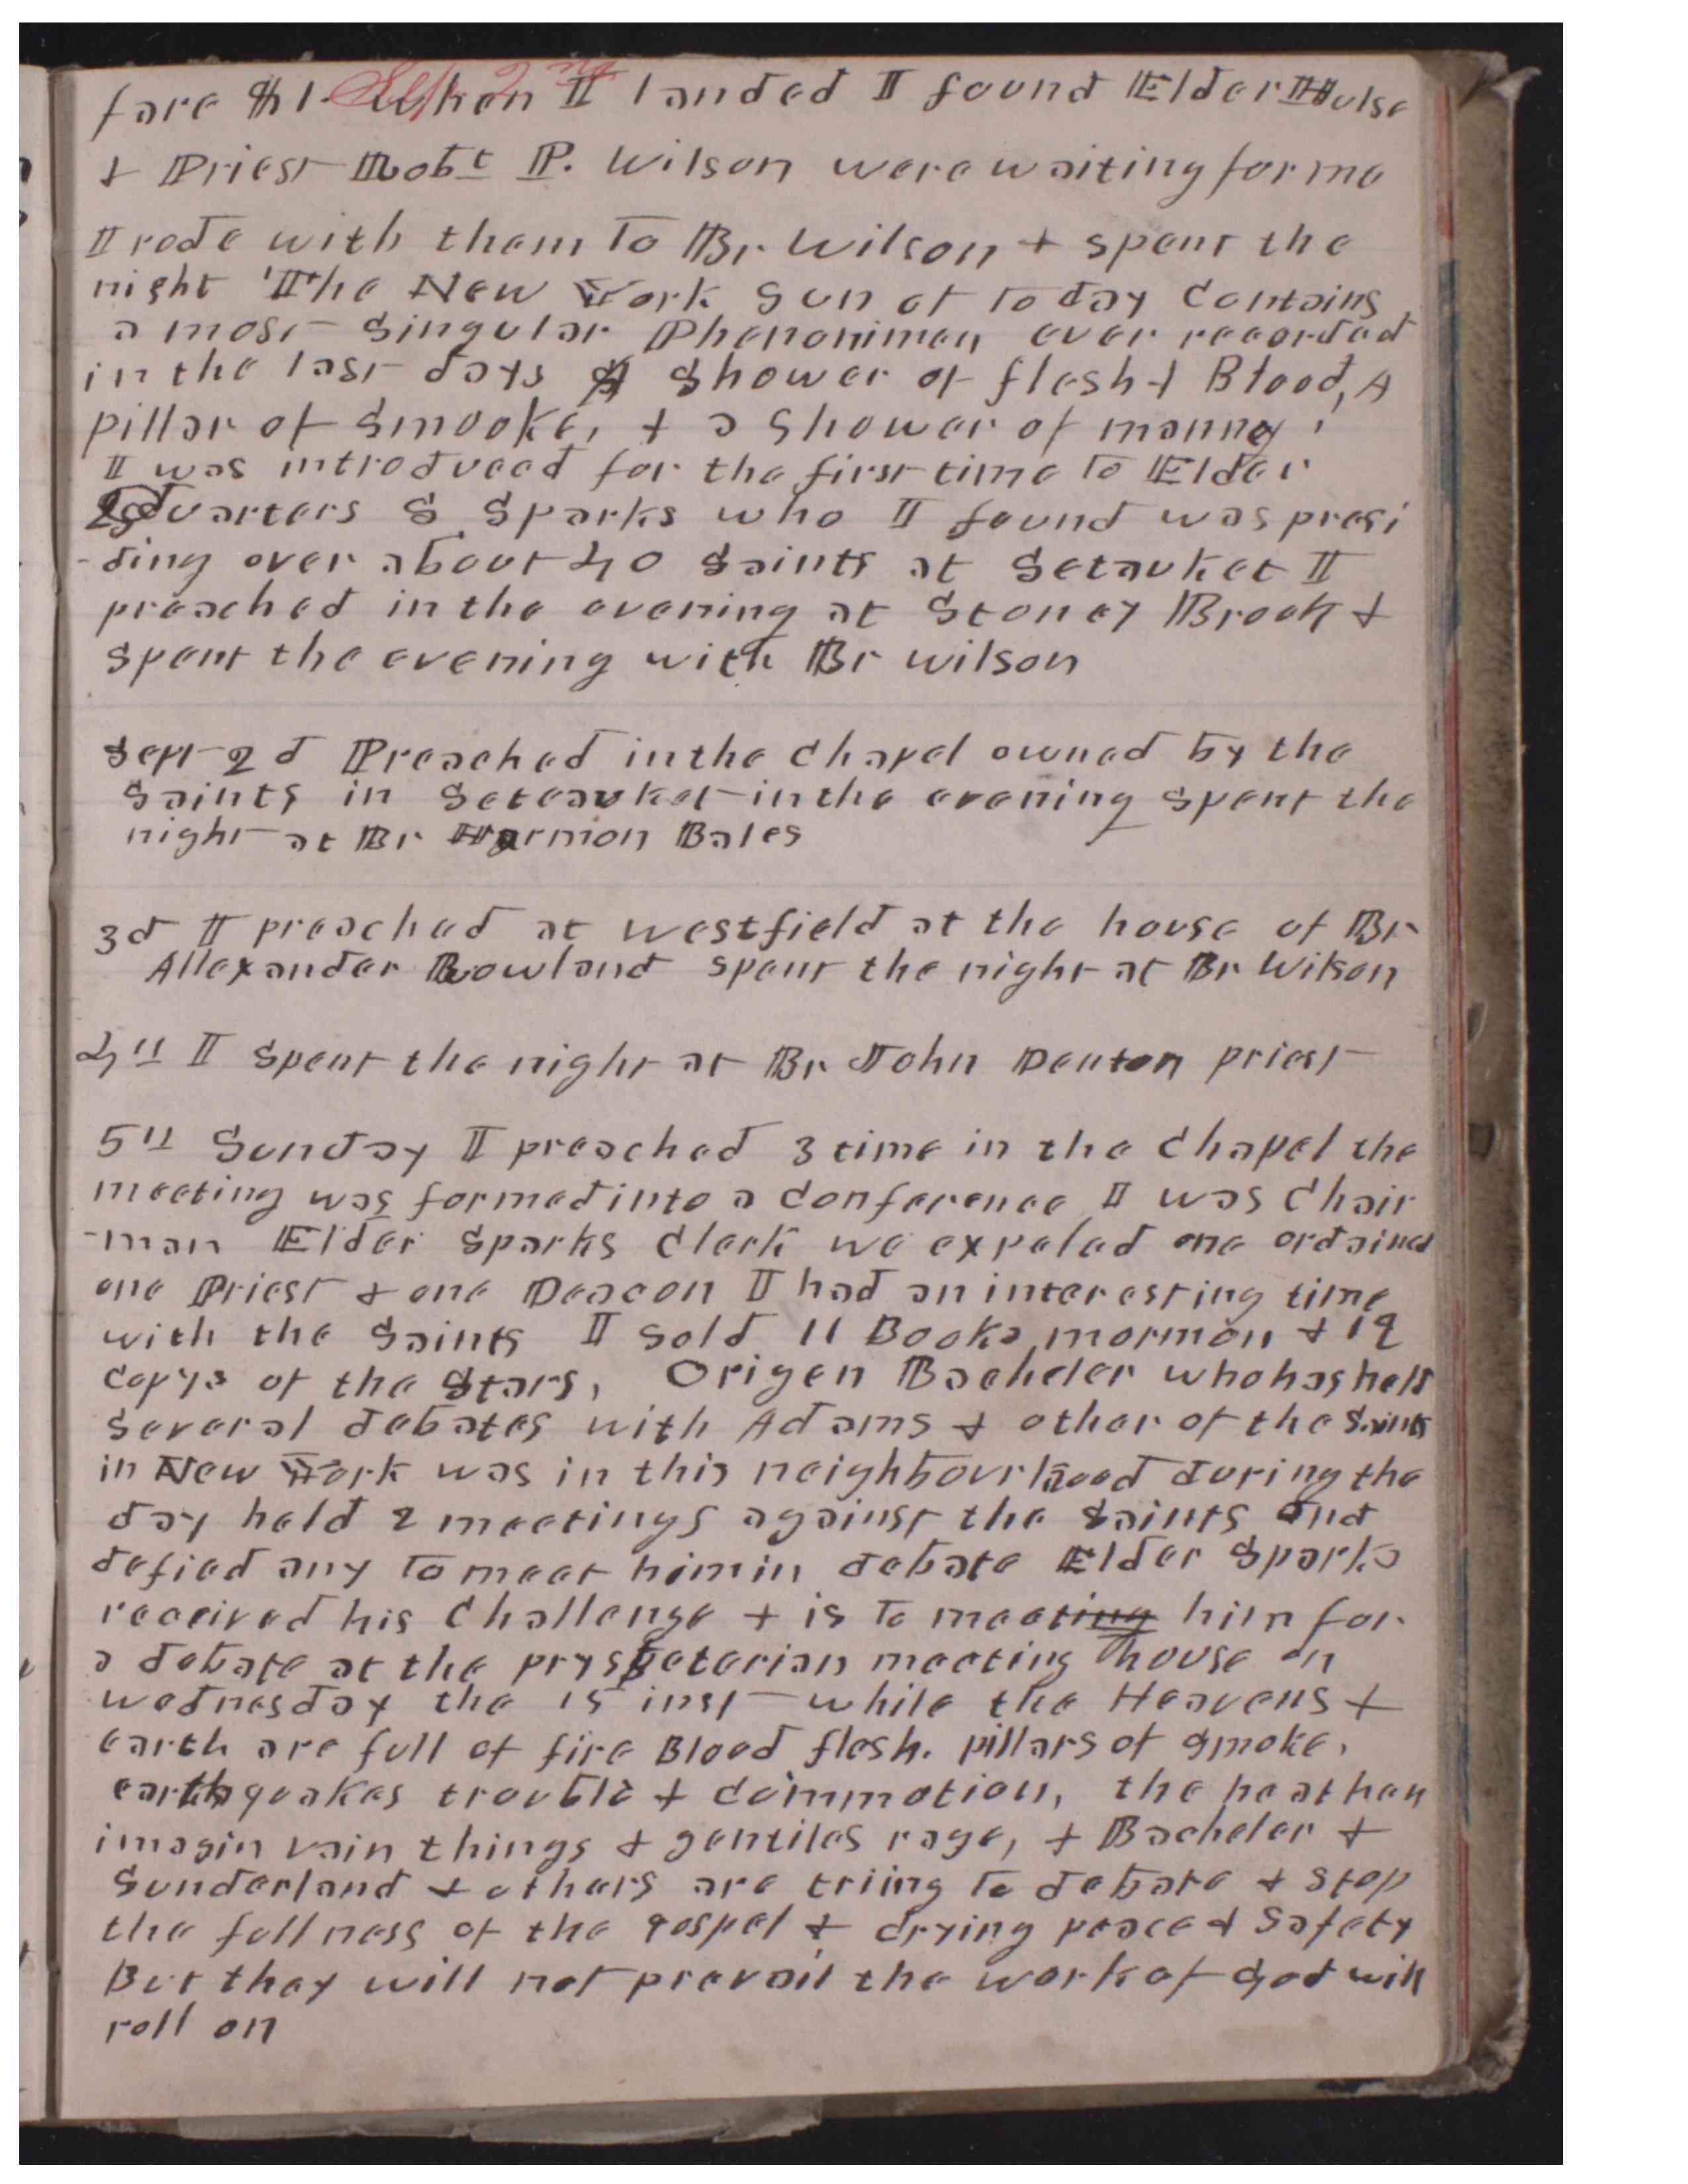 fare $1. Sept 2nd When I landed I found Elder Hulse
& Priest Robt P. Wilson were waiting for me
I rode with them To Br Wilson & spent the
night The New York Sun of To day Contains
a most Singular Phenonimen ever recorded
in the last days A Shower of flesh & Blood, A
pillar of Smooke, & a Shower of manny!
I was introduced for the first time To Elder
Quarters S Sparks who I found was presi
-ding over about 40 Saints at Setauket I
preached in the evening at Stoney Brook &
Spent the evening with Br wilson
Sept 2d Preached in the Chapel owned by the
Saints in Seteauket in the evening Spent the
night at Br Harmon Bales
3d I preached at westfield at the house of Br
Allexander Rowland spent the night at Br Wilson
4th I Spent the night at Br John Denton priest
5th Sunday I preached 3 time in the Chapel the
meeting was formed into a Conference I was Chair
-man Elder Sparks Clerk we expeled one ordained
one Priest & one Deacon I had an interesting time
with the Saints I Sold 11 Books mormon & 19
copys of the Stars, Origen Bacheler who has held
Several debates with Adams & other of the Saints
in New York was in this neighbourhood during the
day held 2 meetings against the Saints and
defied any To meet him in debate Elder Sparks
received his Challenge & is To meeting him for
a debate at the prysbeterian meeting house on
wednesday the 15 inst while the Heavens &
earth are full of fire Blood flesh. pillars of Smoke,
earthquakes trouble & Commotion, the heathen
imagin vain things & gentiles rage, & Bacheler &
Sunderland & others are triing To debate & Stop
the fullness of the gospel & crying peace & Safety
But they will not prevail the work of God will
roll on